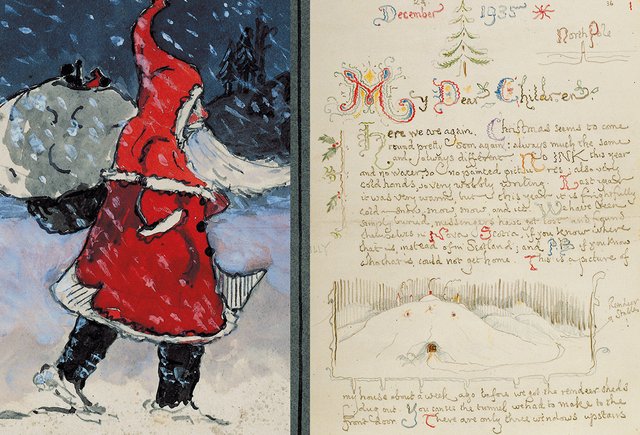 December 1935
36
North Pole
My Dear Children.
Here we are again. Christmas seems to come
round pretty soon again: always much the same
and always different. No INK this year
and no water so no painted pictures; also very
cold hands so very wobbly writing. Last year
it was very warm, but this year it is frightfully
cold – snow, snow, snow and ice. We have been
simply buried, messengers have got lost and found
themselves in Nova Scotia, if you know where
that is, instead of in Scotland; and PB, if you know
who that is, could not get home. This is a picture of
Reindeer
my house about a week ago before we got the reindeer sheds
dug out. You can see the tunnel we had to make to the
front door. There are only three windows upstairs